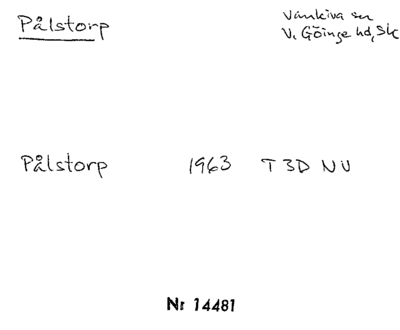 Pålstorp
Vankiva sn
V. Göinge hd, Sk
Pålstorp 1963 T 3D NV
Nr 14481